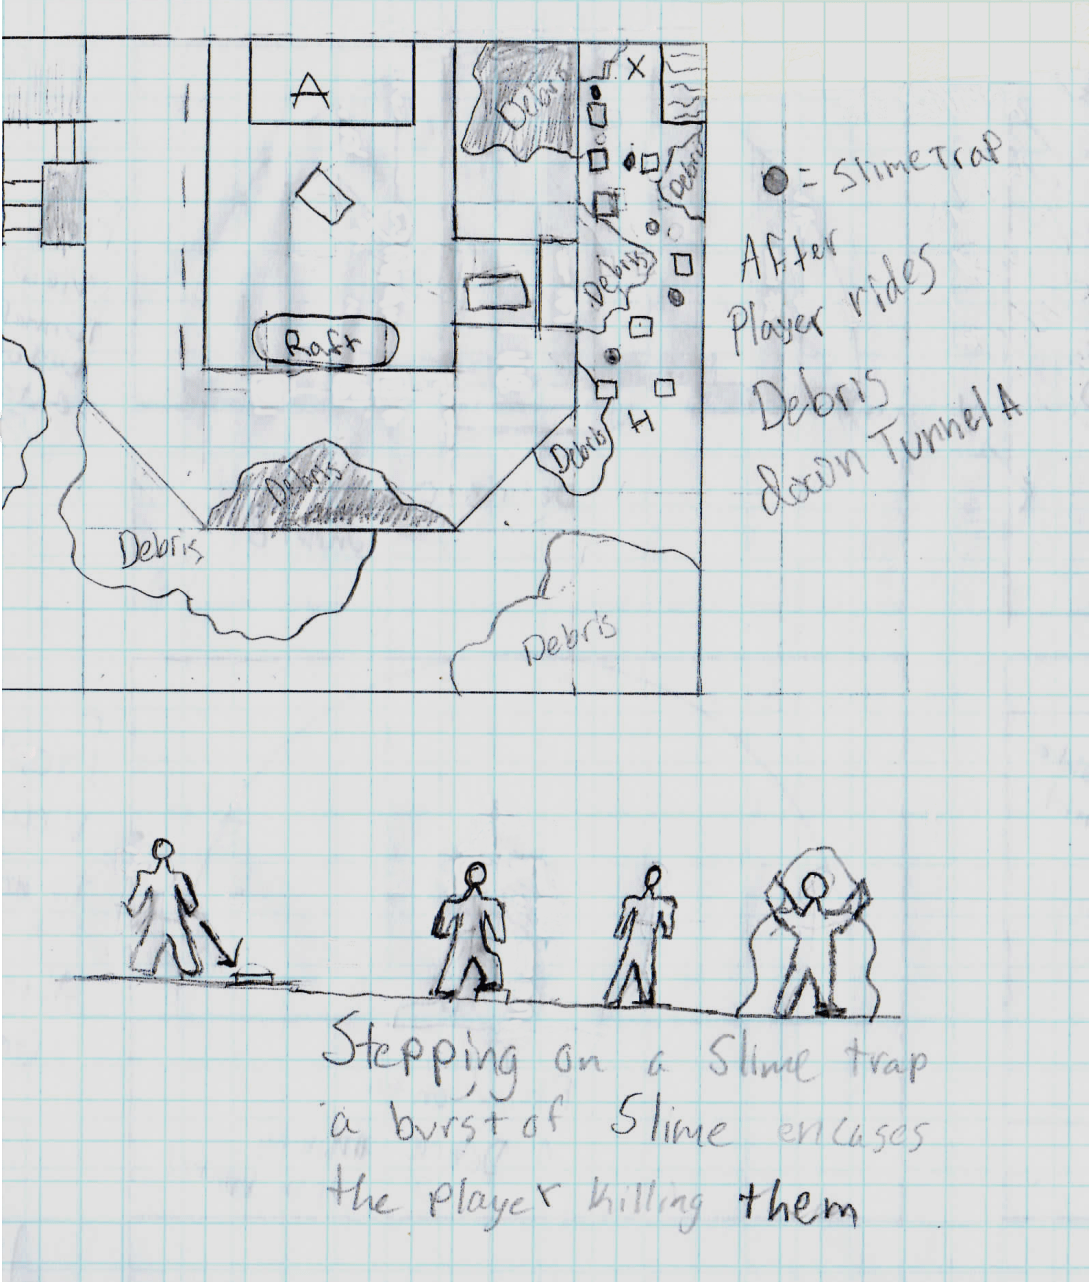 A
X
Debris
Debris
● = Slime Trap
Debris
After
Player rides
Raft
Debris
H
down Tunnel A
Debris
Debris
Debris
Debris
Stepping on a Slime trap
a burst of Slime encases
the player killing them